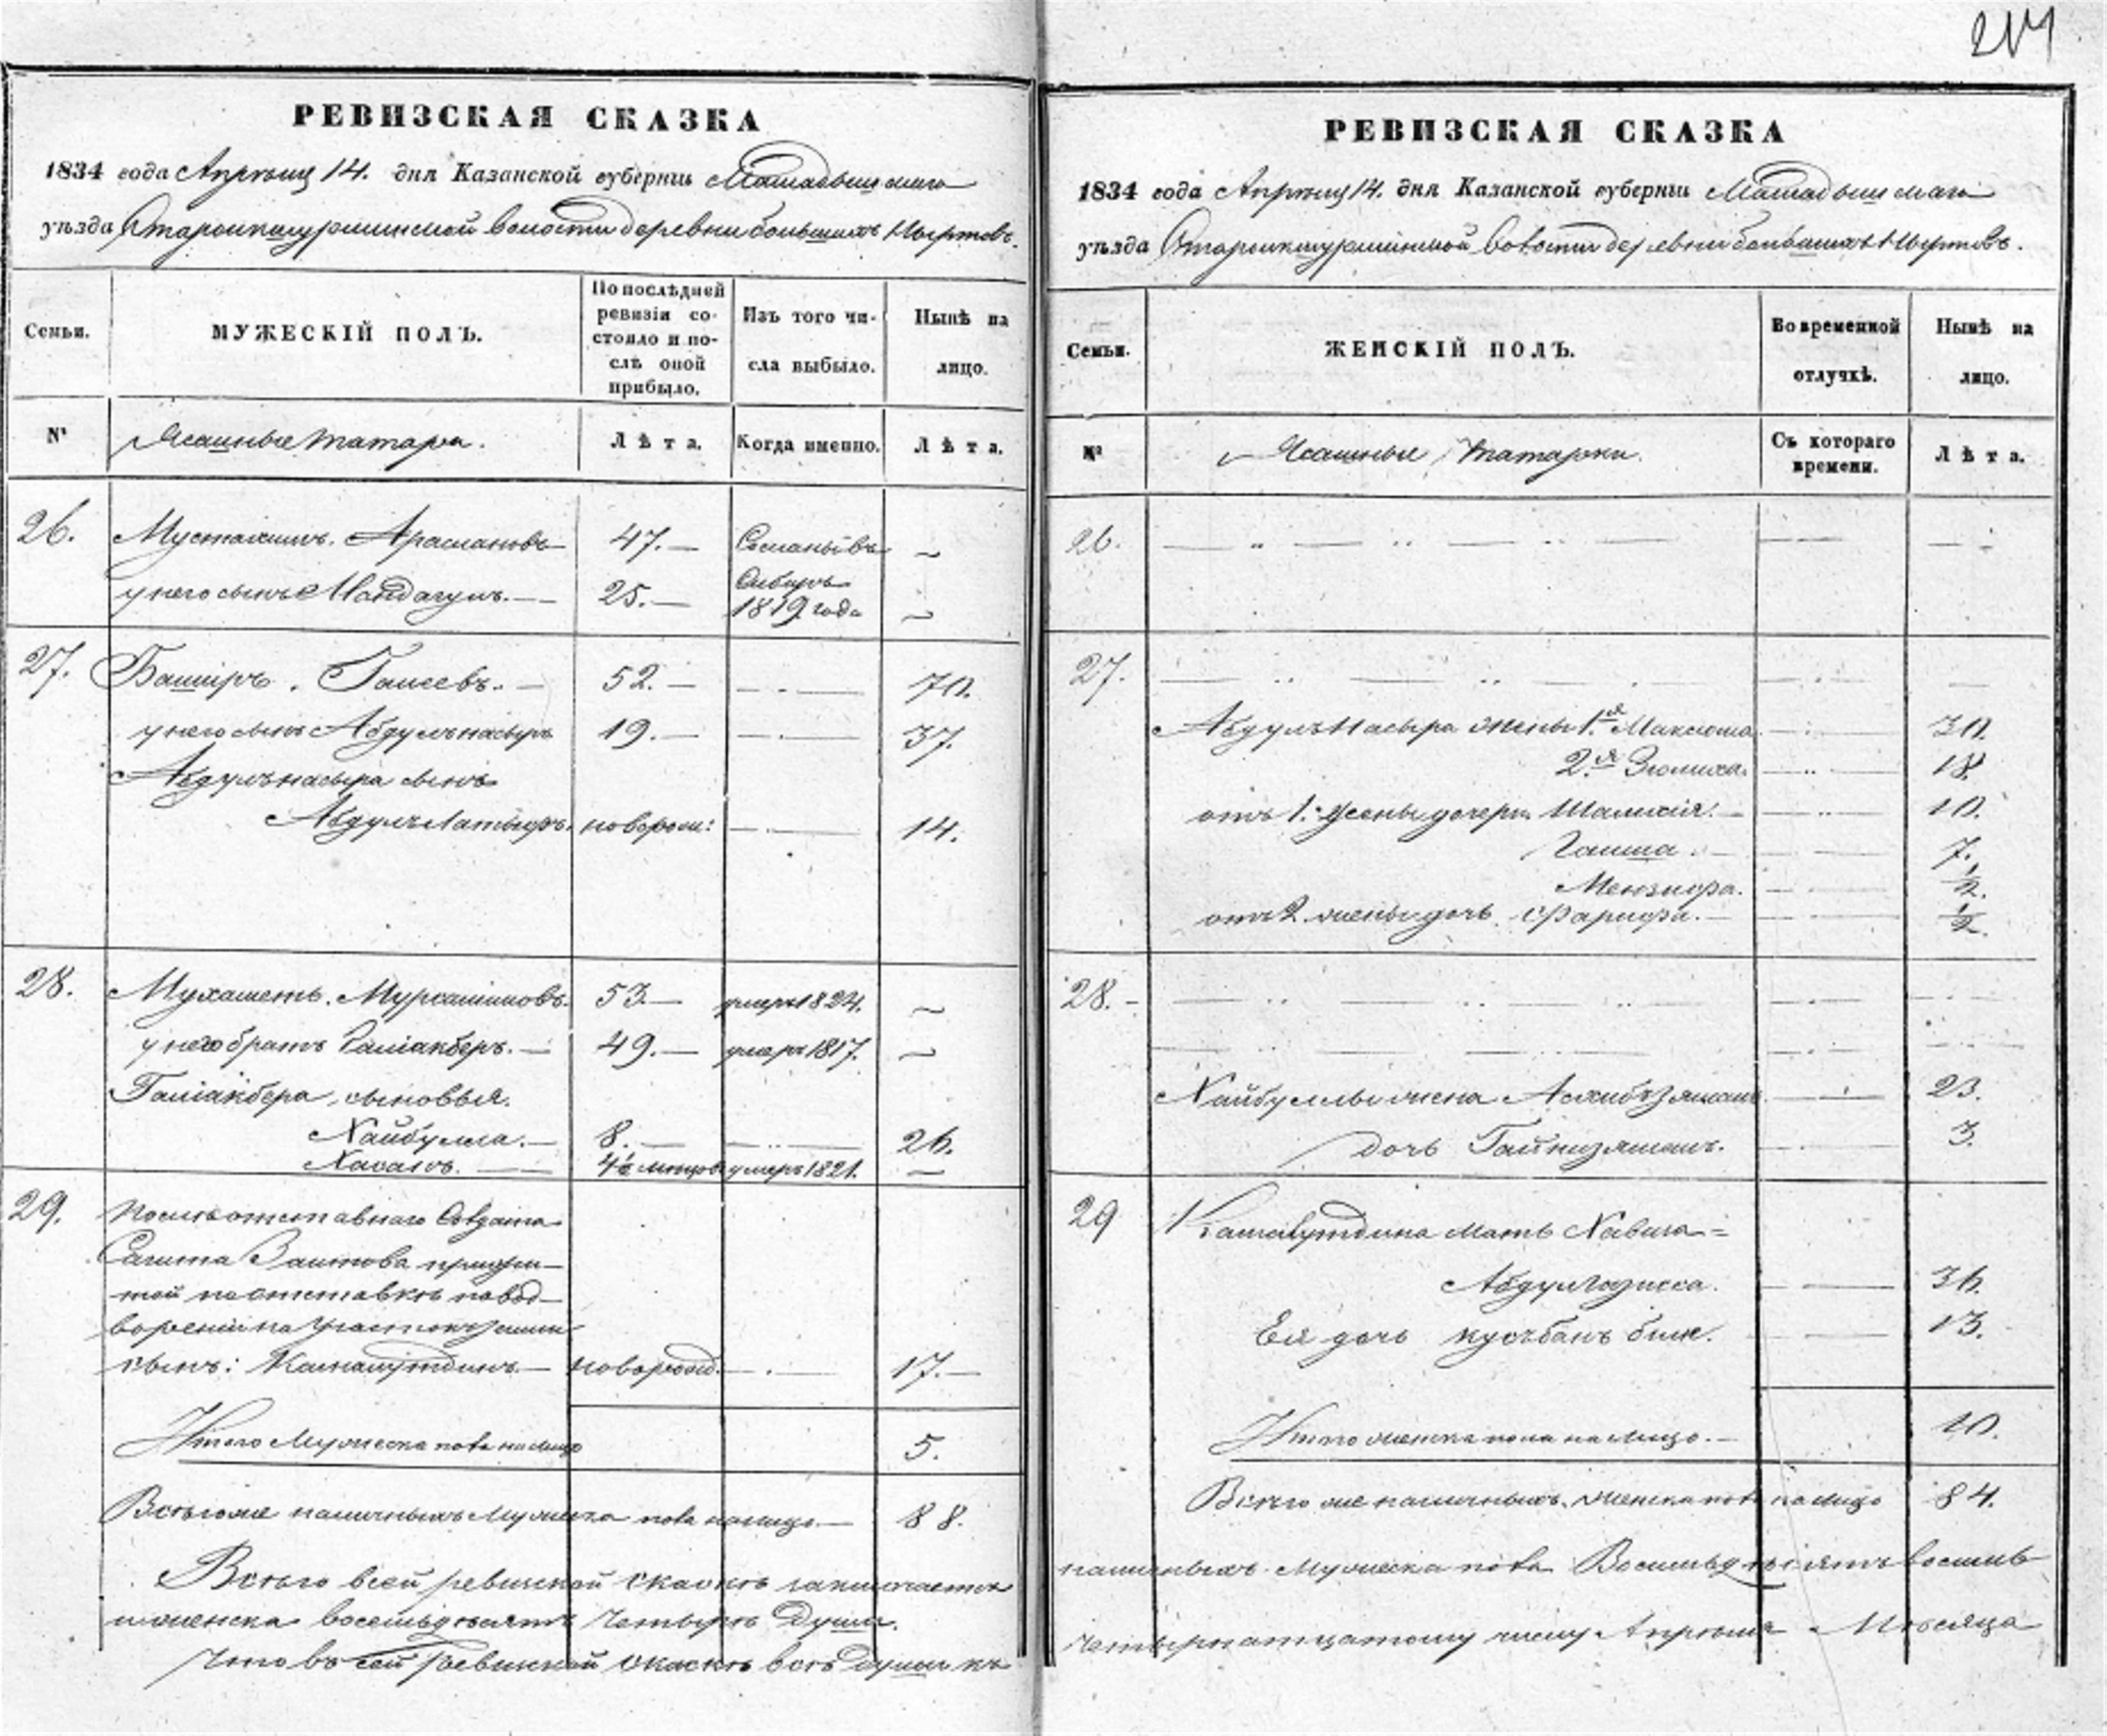 214
РЕВИЗСКАЯ СКАЗКА
1834 года Апрѣля 14. дня Казанской губерніи Мамадышскаго
уѣзда Старокишурминской волости деревни большихъ Нырговъ.
Семьи.
МУЖЕСКІЙ ПОЛЪ.
По послѣдней ревизіи состояло и послѣ оной прибыло.
Изъ того числа выбыло.
Нынѣ на лицо.
№ Ясашные татара. Лѣта. Когда именно. Лѣта.
26. Мустакимъ. Арасланов 47.— Сосланы въ —
у него сынъ 25.— Сибирь
1819 года —
27. Баширъ. Гаисевъ.— 52.— — 70.
у него сынъ Абдулънасыръ 19.— — 37.
Абдулънасыра сынъ
Абдулълатыфъ. новорож: — 14.
28. Мухаметь. 53.— умеръ 1824. —
у него братъ Галіакберъ.— 49.— умеръ 1817. —
Галіакбера сыновья.
Хайбулла.— 8.— — 26.
Хасанъ. 4½ мѣсецовъ умеръ 1821. —
29. После отставнаго Солдата
Сагита Заитова прижи-
той по отставкѣ по вод-
вореніи на участокъ
сынъ: Камалутдинъ— новорожд.— 17.—
Итого Мужеска пола на лицо 5.
Всѣгоже наличныхъ Мужеска пола налицо— 88.
Всѣго всей ревизской скаскѣ заключается
и женска восемьдѣсятъ четырѣ души.
Что въ сей Ревизской скаскѣ всѣ души къ
РЕВИЗСКАЯ СКАЗКА
1834 года Апрѣля 14. дня Казанской губерніи Мамадышскаго
уѣзда Старокишурминской волости деревни большихъ Нырговъ.
Семьи.
ЖЕНСКІЙ ПОЛЪ.
Во временной отлучкѣ.
Нынѣ на лицо.
№ Ясашные татарки. Съ котораго времени. Лѣта.
26.
27.
Абдулънасыра жены 1.я Максюта 30.
2.я Зюлиха. 18.
отъ 1. жены дочери Шамсія.— 10.
Гаиша. 7.
½.
отъ 2. жены дочь ½.
28.
Хайбуллы жена 23.
дочь 3.
29 Камалутдина мать Хабига=
36.
Ея дочь 13.
Итого женска пола на лицо.— 10.
Всѣго же наличныхъ женска пола на лицо 84.
наличныхъ Мужеска пола Восемьдѣсятъ восемь
четырнатцатому числу Апрѣля Мѣсяца